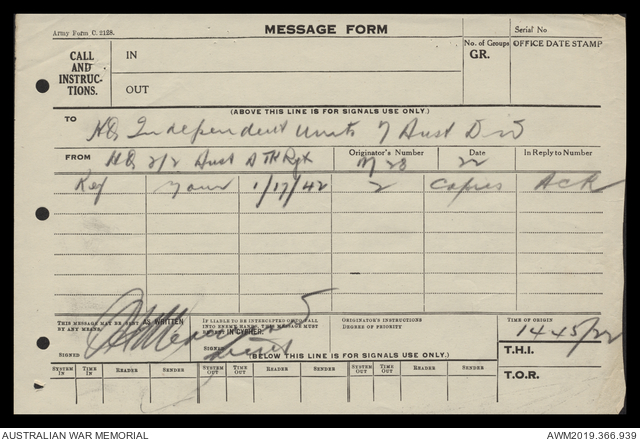 Army Form C. 2128.
MESSAGE FORM
Serial No
CALL AND INSTRUC- TIONS.
IN
OUT
No. of Groups GR.
OFFICE DATE STAMP
(ABOVE THIS LINE IS FOR SIGNALS USE ONLY.)
TO
HQ Independent Units 7 Aust Div
FROM HQ 2/2 Aust A TK Rgt
Originator's Number
M 28
Date
22
In Reply to Number
Ref your 1/17/42 2 Copies ACK
THIS MESSAGE MAY BE SENT AS WRITTEN BY ANY MEANS.
SIGNED
IF LIABLE TO BE INTERCEPTED OR TO FALL INTO ENEMY HANDS, THIS MESSAGE MUST BE SENT IN CYPHER.
SIGNED
ORIGINATOR'S INSTRUCTIONS
DEGREE OF PRIORITY
TIME OF ORIGIN
1445/22
(BELOW THIS LINE IS FOR SIGNALS USE ONLY.)
T.H.I.
T.O.R.
SYSTEM IN TIME IN READER SENDER SYSTEM OUT TIME OUT READER SENDER SYSTEM OUT TIME OUT READER SENDER
AUSTRALIAN WAR MEMORIAL
AWM2019.366.939